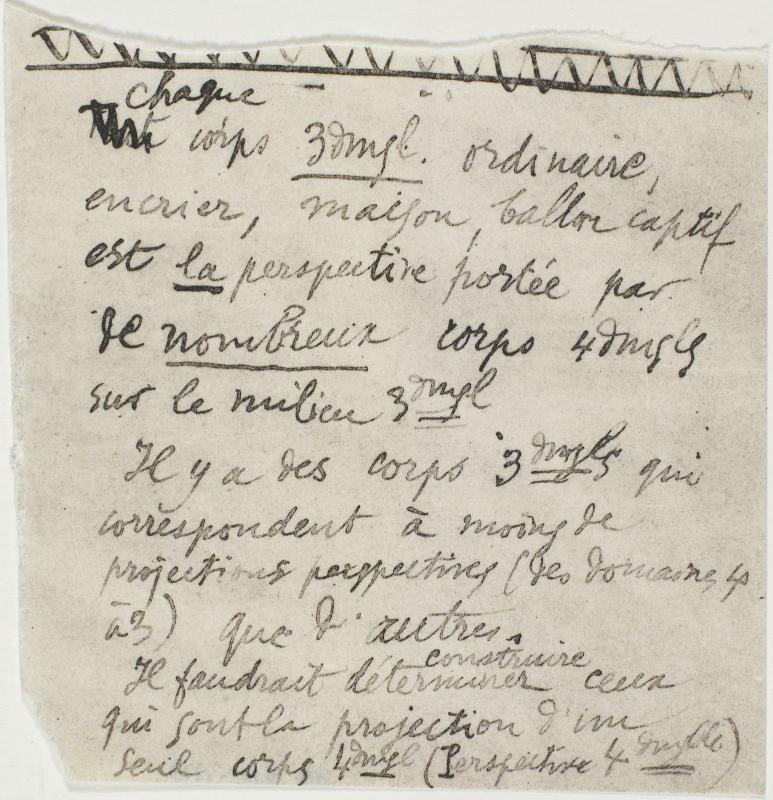 chaque
corps 3dmgl. ordinaire,
encrier, maison, ballon captif
est la perspective portée par
de nombreux corps 4dmgls
sur le milieu 3dmgl
Il y a des corps 3dmgls qui
correspondent à moins de
projections perspectives (des domaines 4
à 3) que d'autres.
construire
Il faudrait déterminer ceux
qui sont la projection d'un
seul corps 4dmgl (Perspective 4dmglle)